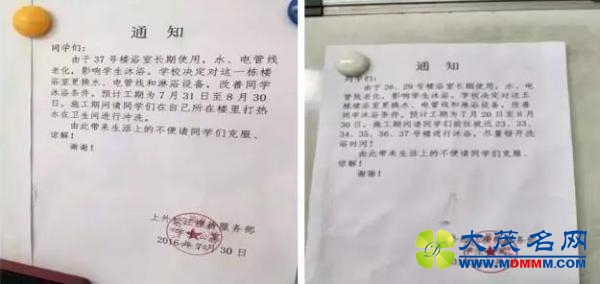 通 知
同学们：
由于 37 号楼浴室长期使用，水、电管线
老化，影响学生沐浴。学校决定对这一栋楼
浴室更换水、电管线和淋浴设备，改善同学
沐浴条件。预计工期为 7 月 31 日至 8 月 30
日。施工期间请同学们在自己所在楼里打热
水在卫生间进行冲洗。
由此带来生活上的不便请同学们克服、
谅解！
谢谢！
上外松江 服务部
2016 年 7 月 30 日
通 知
同学们：
由于 26、29 号楼浴室长期使用，水、电
管线老化，影响学生沐浴。学校决定对这五
栋楼浴室更换水、电管线和淋浴设备，改善
同学沐浴条件。预计工期为 7 月 20 日至 8 月
30 日。施工期间请同学们前往就近 23、33、
34、35、36、37 号楼进行沐浴，尽量错开洗
浴时间？
由此带来生活上的不便请同学们克服、
谅解！
谢谢！
上外 服务部
大茂名网
WWW.MDMMM.COM